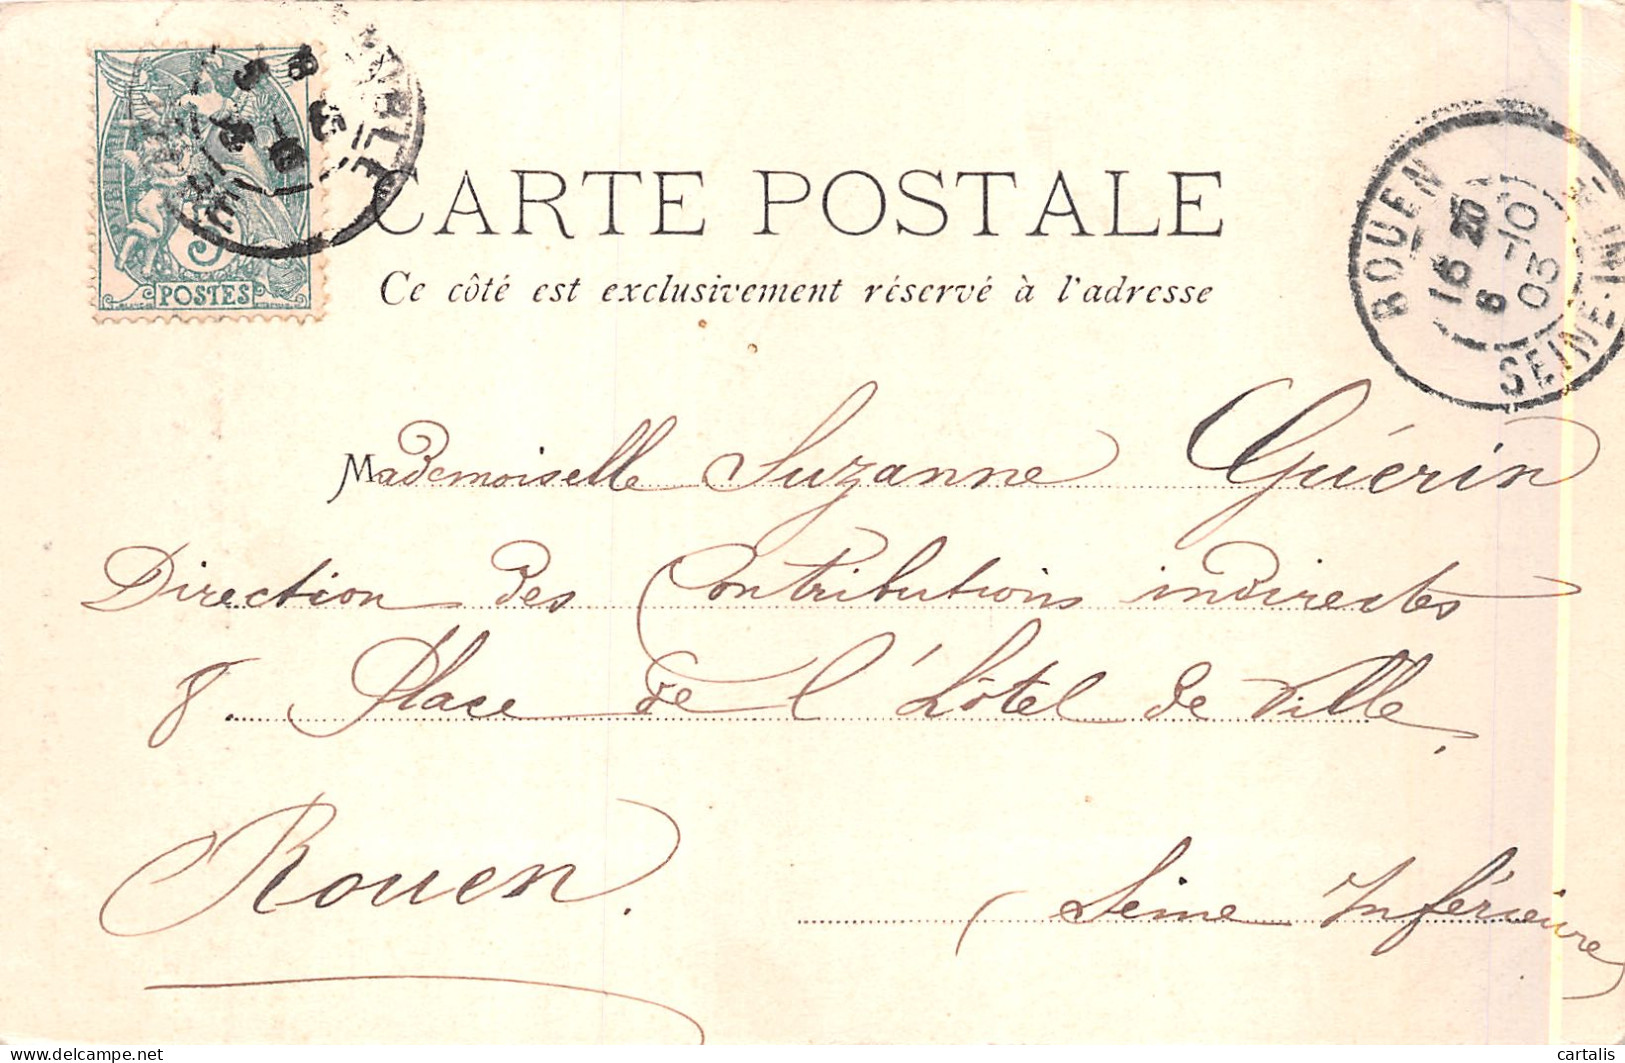 POSTES
5
CARTE POSTALE
Ce côté est exclusivement réservé à l'adresse
ROUEN
16 20
6 -10
05
SEINE-IN
Mademoiselle Suzanne Guérin
Direction des Contributions indirectes
8. Place de l'Hôtel de Ville,
Rouen.
(Seine Inférieure)
delcampe.net
cartalis